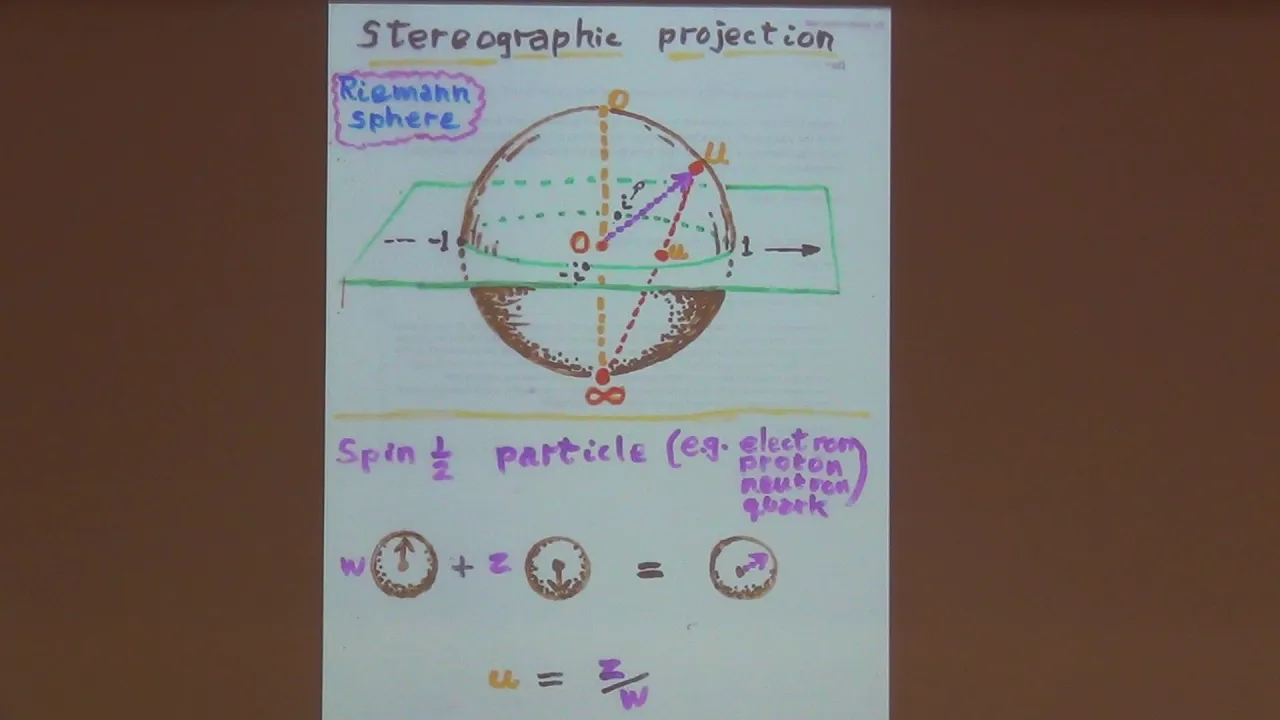 Stereographic projection
Riemann
sphere
0
u
i
-1
0
u
1
-i
∞
Spin 1/2 particle (e.g. electron
proton
neutron
quark)
w + z =
u = z/w